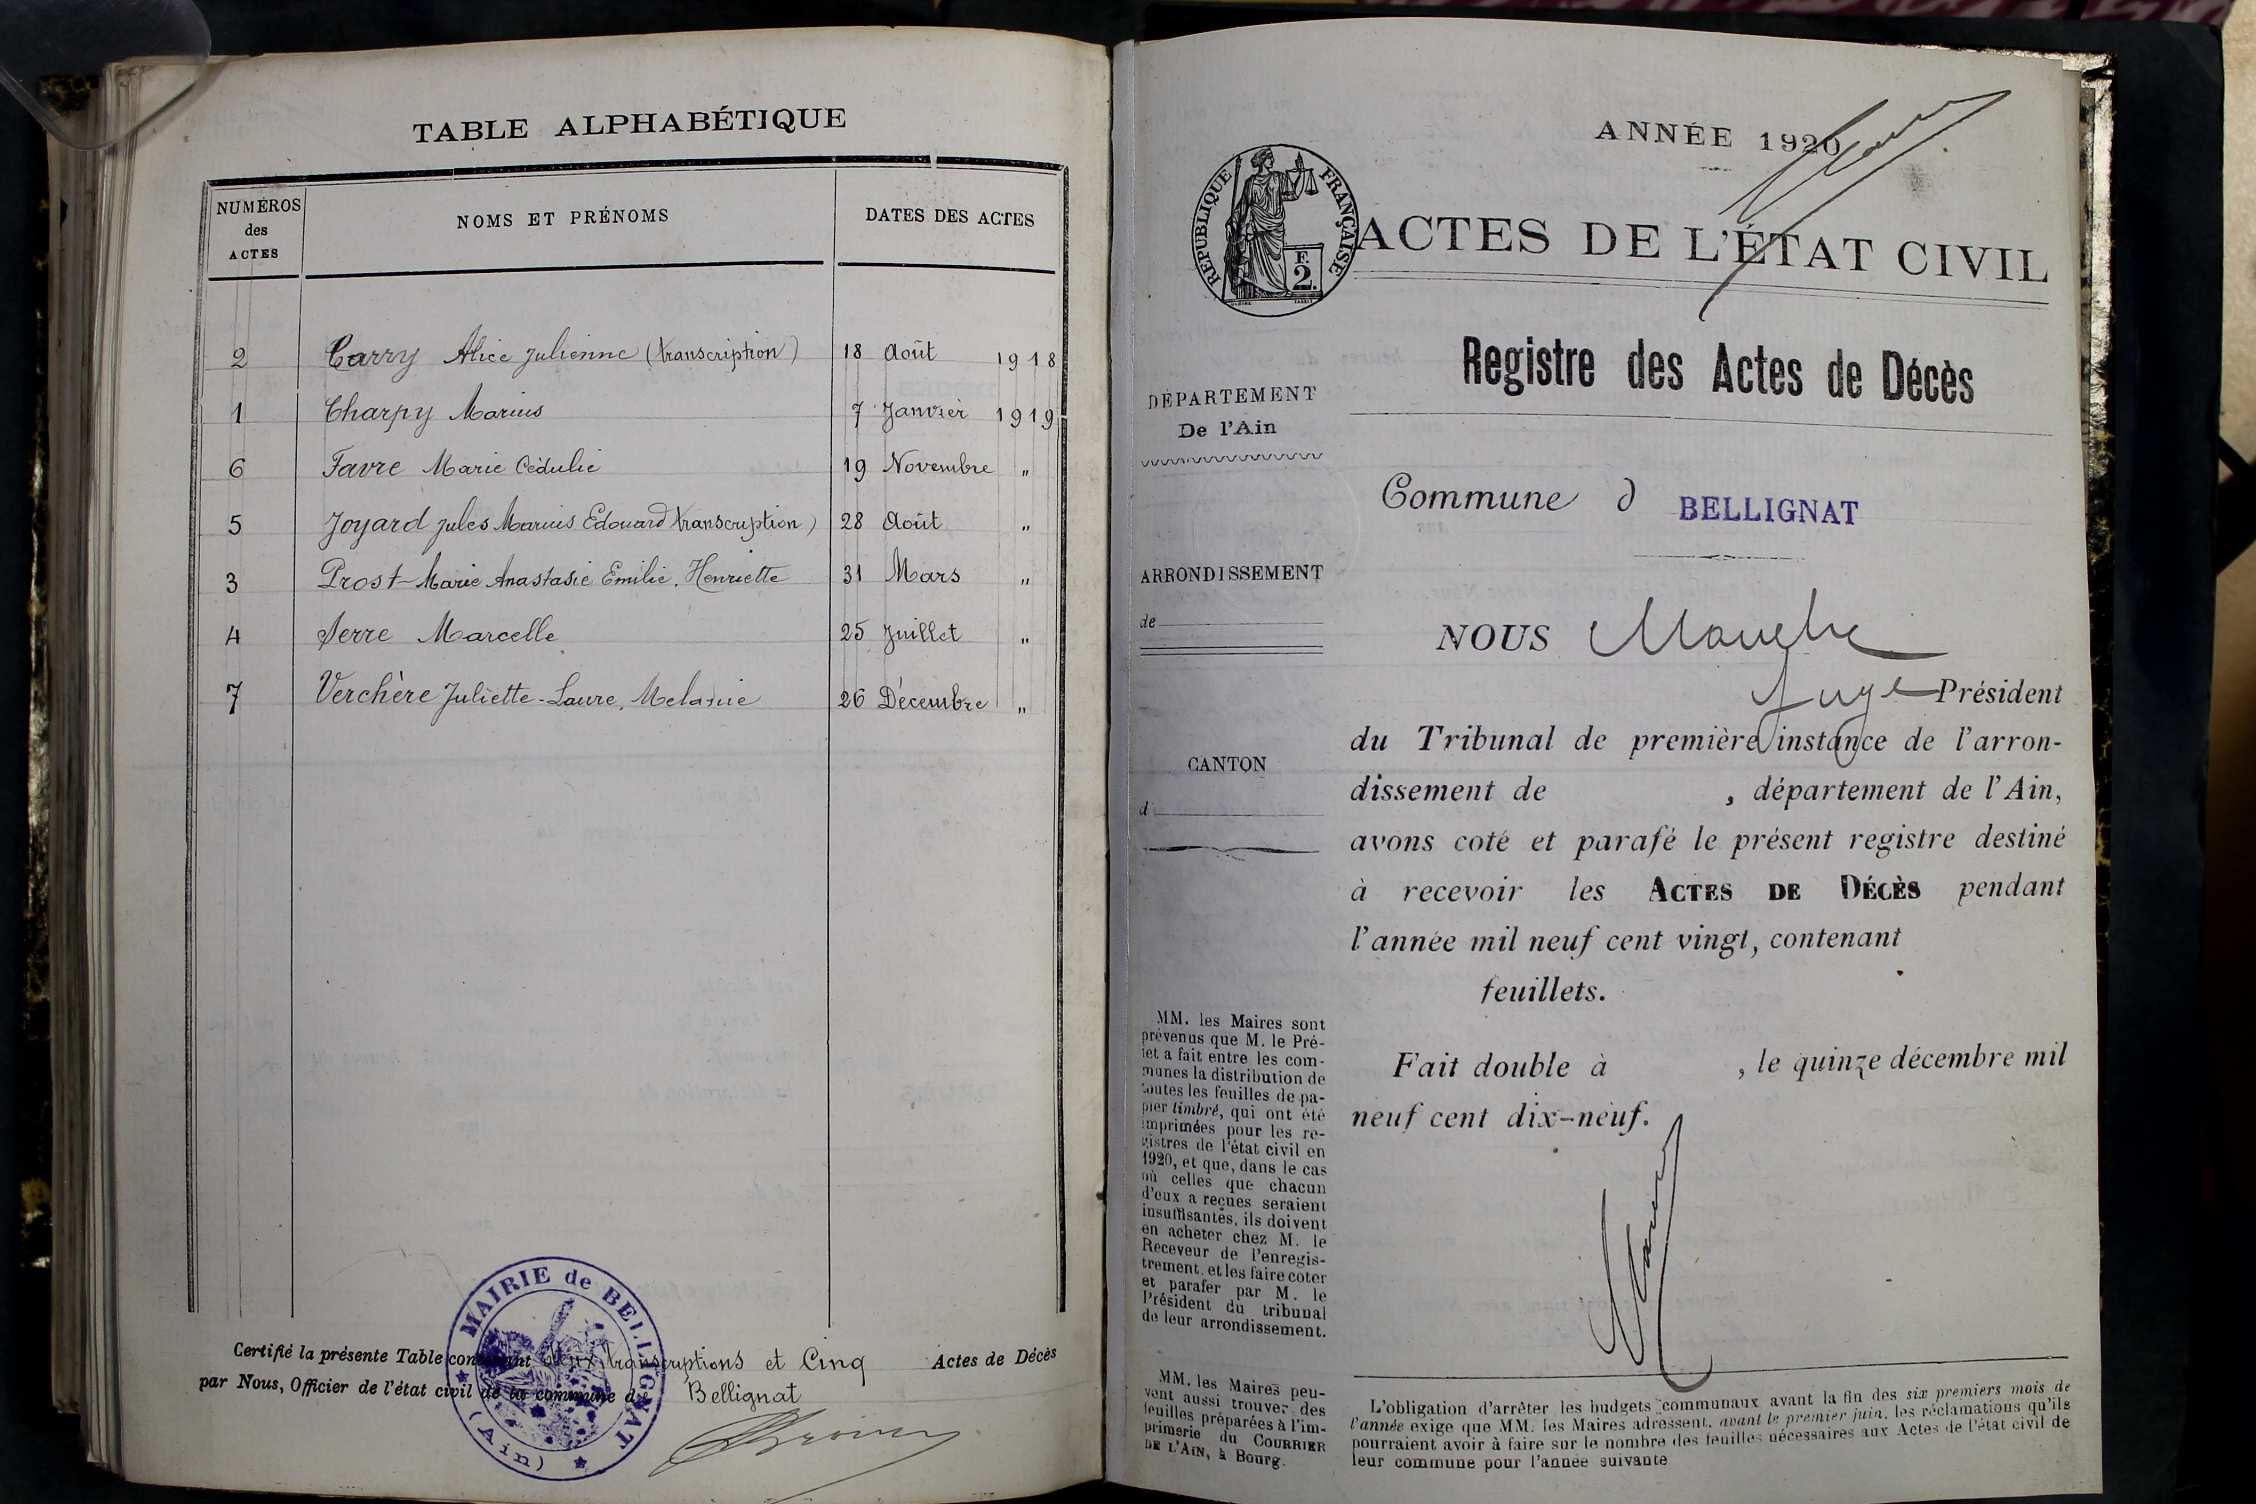 TABLE ALPHABÉTIQUE
NUMÉROS
des
ACTES
NOMS ET PRÉNOMS
DATES DES ACTES
2 Carry Alice Julienne (transcription) 18 Août 1918
1 Charpy Marius 7 Janvier 1919
6 Favre Marie Cédulie 19 Novembre "
5 Joyard Jules Marius Edouard transcription) 28 Août "
3 Prost Marie Anastasie Emilie, Henriette 31 Mars "
4 Serre Marcelle 25 Juillet "
7 Verchère Juliette-Laure, Melanie 26 Décembre "
Certifié la présente Table contenant deux transcriptions et Cinq Actes de Décès
par Nous, Officier de l'état civil de la commune de Bellignat
MAIRIE de BELLIGNAT
(Ain)
ANNÉE 1920
RÉPUBLIQUE FRANÇAISE
F.
2.
ACTES DE L'ÉTAT CIVIL
Registre des Actes de Décès
DÉPARTEMENT
De l'Ain
Commune d BELLIGNAT
ARRONDISSEMENT
de
CANTON
d
NOUS
Juge Président
du Tribunal de première instance de l'arron-
dissement de , département de l'Ain,
avons coté et parafé le présent registre destiné
à recevoir les ACTES DE DÉCÈS pendant
l'année mil neuf cent vingt, contenant
feuillets.
Fait double à , le quinze décembre mil
neuf cent dix-neuf.
MM. les Maires sont
prévenus que M. le Pré-
fet a fait entre les com-
munes la distribution de
toutes les feuilles de pa-
pier timbré, qui ont été
imprimées pour les re-
gistres de l'état civil en
1920, et que, dans le cas
où celles que chacun
d'eux a reçues seraient
insuffisantes, ils doivent
en acheter chez M. le
Receveur de l'enregis-
trement, et les faire coter
et parafer par M. le
Président du tribunal
de leur arrondissement.
MM. les Maires peu-
vent aussi trouver des
feuilles préparées à l'im-
primerie du COURRIER
DE L'AIN, à Bourg.
L'obligation d'arrêter les budgets communaux avant la fin des six premiers mois de
l'année exige que MM. les Maires adressent, avant le premier juin, les réclamations qu'ils
pourraient avoir à faire sur le nombre des feuilles nécessaires aux Actes de l'état civil de
leur commune pour l'année suivante